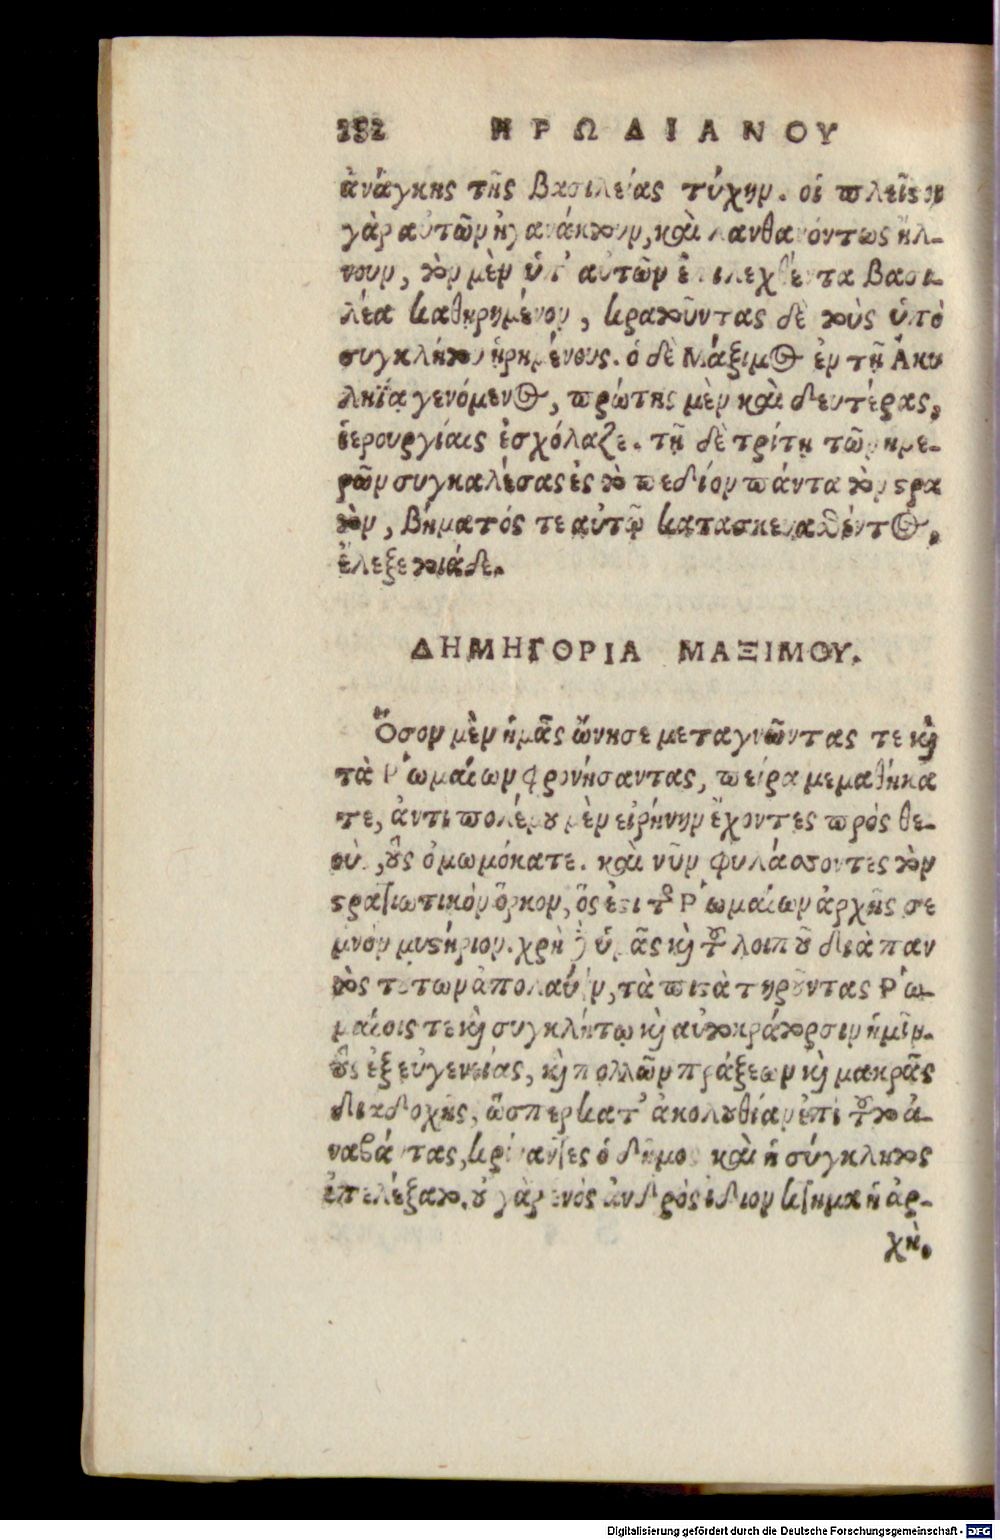 232 ΗΡΩΔΙΑΝΟΥ
ἀνάγκης τῆς βασιλείας τύχην. οἱ πλεῖςοι
γὰρ αὐτῶν ἠγανάκτουν, καὶ λανθανόντως ἤλ-
γουν, τὸν μὲν ὑπ' αὐτῶν ἐπιλεχθέντα βασι
λέα καθῃρημένον, κρατοῦντας δὲ τοὺς ὑπὸ
συγκλήτου ᾑρημένους. ὁ δὲ Μάξιμος ἐν τῇ Ἀκυ
ληΐᾳ γενόμενος, πρώτης μὲν καὶ δευτέρας,
ἱερουργίαις ἐσχόλαζε. τῇ δὲ τρίτῃ τῶν ἡμε-
ρῶν συγκαλέσας ἐς τὸ πεδίον πάντα τὸν ςρα
τὸν, βήματός τε αὐτῷ κατασκευασθέντος,
ἔλεξε τοιάδε.
ΔΗΜΗΓΟΡΙΑ ΜΑΞΙΜΟΥ.
Ὅσον μὲν ἡμᾶς ὤνησε μεταγνῶντας τε καὶ
τὰ Ῥωμαίων φρονήσαντας, πείρᾳ μεμαθήκα
τε, ἀντὶ πολέμου μὲν εἰρήνην ἔχοντες πρὸς θε-
οὺς, οὓς ὀμωμόκατε. καὶ νῦν φυλάσσοντες τὸν
ςρατιωτικὸν ὅρκον, ὅς ἐςι τοῦ Ῥωμαίων ἀρχῆς σε
μνὸν μυςήριον. χρὴ δὲ ὑμᾶς καὶ τοῦ λοιποῦ διὰ παν
τὸς τούτων ἀπολαύειν, τὰ πιςὰ τηροῦντας Ῥω-
μαίοις τε καὶ συγκλήτῳ καὶ αὐτοκράτορσιν ἡμῖν.
οὓς ἐξ εὐγενείας, καὶ πολλῶν πράξεων καὶ μακρᾶς
διαδοχῆς, ὥσπερ κατ' ἀκολουθίαν ἐπὶ τοῦτο ἀ-
ναβάντας, κρίναντες ὁ δῆμος καὶ ἡ σύγκλητος
ἐπελέξατο. οὐ γὰρ ἑνὸς ἀνδρὸς ἴδιον κτῆμα ἡ ἀρ-
χὴ.
Digitalisierung gefördert durch die Deutsche Forschungsgemeinschaft - DFG